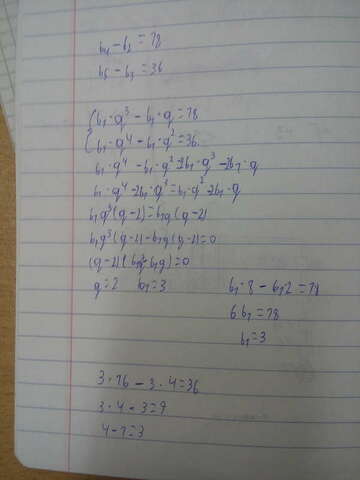 b₄ - b₂ = 18
b₅ - b₃ = 36
{ b₁·q³ - b₁·q = 18
b₁·q⁴ - b₁·q² = 36
b₁·q⁴ - b₁·q² = 2b₁·q³ - 2b₁·q
b₁·q⁴ - 2b₁·q³ = b₁·q² - 2b₁·q
b₁q³(q-2) = b₁q(q-2)
b₁q³(q-2) - b₁q(q-2) = 0
(q-2)(b₁q³ - b₁q) = 0
q = 2 b₁ = 3
b₁·8 - b₁2 = 18
6b₁ = 18
b₁ = 3
3·16 - 3·4 = 36
3·4 - 3 = 9
4 - 1 = 3